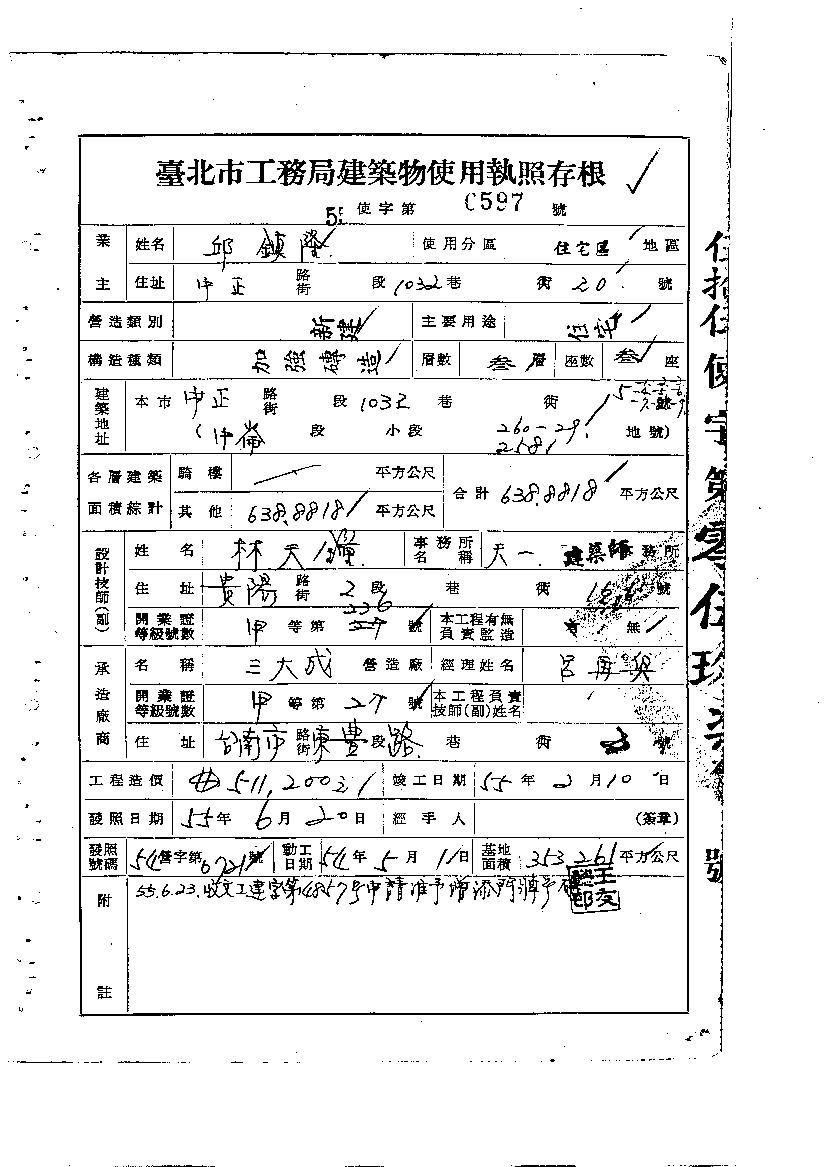 臺北市工務局建築物使用執照存根
55 使字第 0597 號
業主 姓名 邱鎮隆 使用分區 住宅區 地區
住址 中正 路街 段 1032 巷 衖 20 號
營造類別 新建 主要用途 住宅
構造種類 加強磚造 層數 叁層 座數 叁座
建築地址 本市 中正 路街 段 1032 巷 衖 號
(中崙 段 小段 260-29 2581 地號)
各層建築面積綜計 騎樓 平方公尺 合計 638.8818 平方公尺
其他 638.8818 平方公尺
設計技師(副) 姓名 林天 事務所名稱 天一 建築師事務所
住址 貴陽 路街 2段 巷 衖 號
開業證等級號數 甲 等第 226 號 本工程有無負責監造 有 無
承造廠商 名稱 三大成 營造廠 經理姓名 呂再
開業證等級號數 甲 等第 27 號 本工程負責技師(副)姓名
住址 台南市 路街 東豐段路 巷 衖 號
工程造價 511,200 竣工日期 55年2月10日
發照日期 55年6月20日 經手人 (簽章)
發照號碼 54營字第6721號 動工日期 54年5月11日 基地面積 353.261 平方公尺
附註 55.6.23.收文工建字第4857號申請准予增添門牌予
伍拾伍使字第零伍玖柒 號